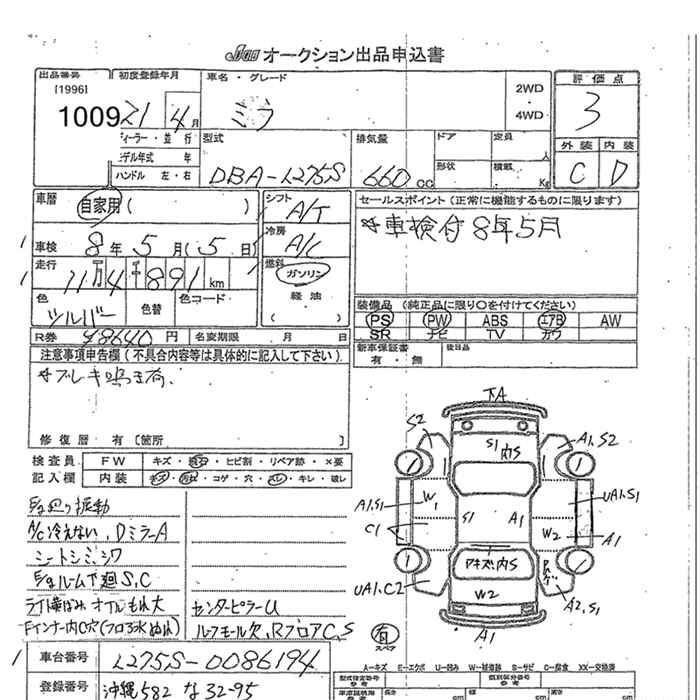 JAA オークション出品申込書
出品番号 初度登録年月 車名・グレード 評価点
[1996] 2WD
10091 21 4月 ミラ 4WD 3
ディーラー・並行 型式 排気量 ドア 定員 外装 内装
モデル年式 年 人
ハンドル 左・右 DBA-L275S 660cc 形状 積載 Kg C D
車歴 自家用 ( ) シフト A/T セールスポイント (正常に機能するものに限ります)
車検 8年5月(5日) 冷房 A/C *車検付 8年5月
走行 11万4千891km 燃料 ガソリン
軽油
( )
色 シルバー 色替 色コード 装備品 (純正品に限り○を付けてください)
PS PW ABS エアB AW
SR ナビ TV カワ
R券 ¥8640円 名変期限 月 日 新車保証書 有・無 後日品
注意事項申告欄(不具合内容等は具体的に記入して下さい)
*ブレーキ鳴き有.
修復歴 有 [箇所 ]
検査員 FW キズ・飛石・ヒビ割・リペア跡・×要
記入欄 内装 キズ・汚れ・コゲ・穴・スレ・キレ・破レ
A/C冷えない, DミラーA
シートシミ,シワ
S,C
オイルもれ大 センターピラーU
Fインナー内C穴 ルーフモール欠, RフロアC,S
車台番号 L275S-0086194
登録番号 沖縄582 な 32-95
下A
S2 S1 内S A1,S2
A1,S1 W1 UA1,S1
C1 S1 A1 W2 A1
UA1,C2 アキズ内S
W2 A2,S1
A1
有
スペア
A-キズ E-エクボ U-凹み W-補修跡 S-サビ C-腐食 XX-交換済
型式指定番号 類別区分番号
参考 参考
長さ cm 幅 cm 高さ cm